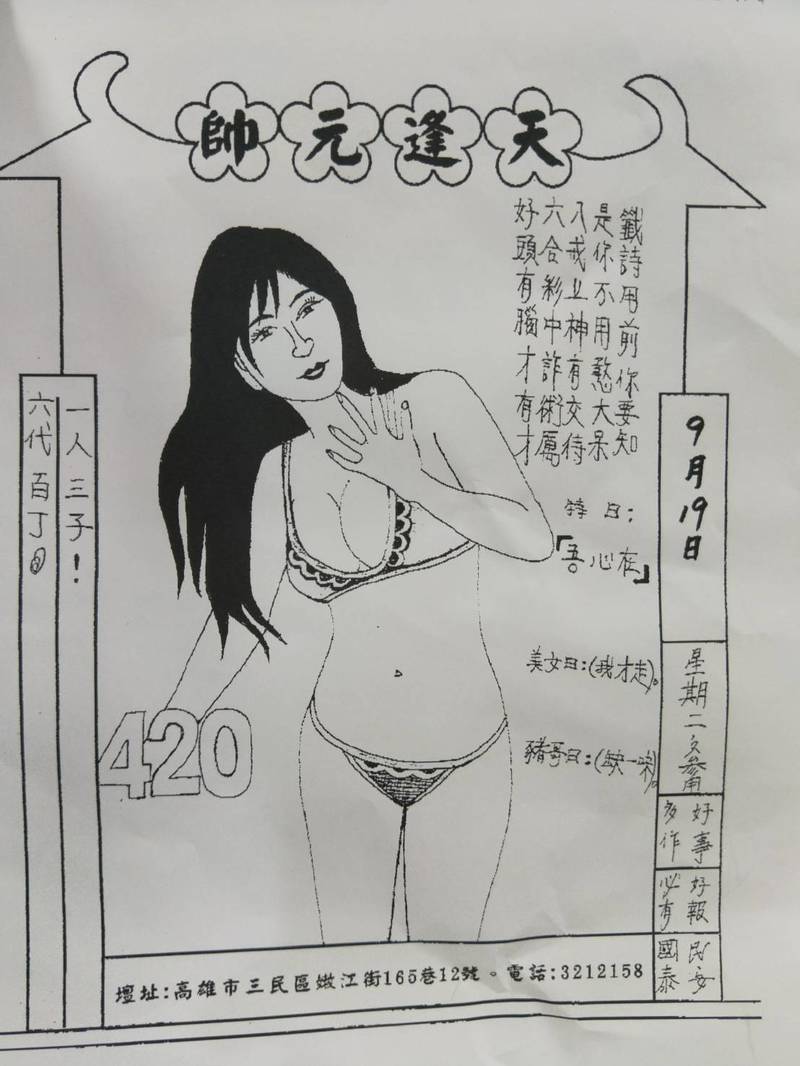 天逢元帥
籤詩用前你要知
是你不用憨大呆
八戒止神有交待
六合彩中詐術厲
好頭有腦才有才
9月19日
「吾心在」
美女曰：(我才走)。
豬哥曰：(缺一味)。
星期二
好事多作
好報必有
民安國泰
一人三子！
六代百丁
420
壇址:高雄市三民區嫩江街165巷12號。電話:3212158